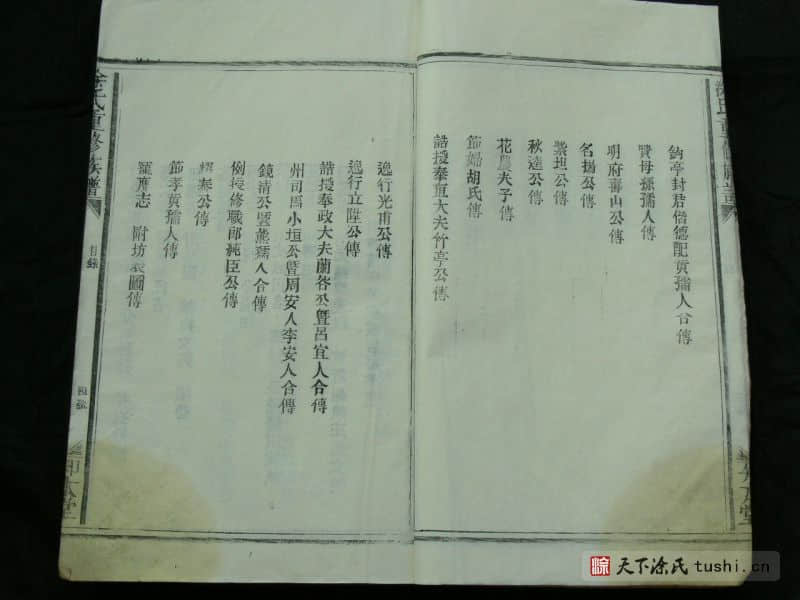 鈞亭封君偕德配黃孺人合傳
賢母孫孺人傳
明府壽山公傳
名揚公傳
紫垣公傳
秋達公傳
花農夫子傳
節婦胡氏傳
誥授奉直大夫竹亭公傳
逸行光甫公傳
逸行立陞公傳
誥授奉政大夫蘭谷公暨呂宜人合傳
州司馬小垣公暨周安人李安人合傳
鏡清公暨熊孺人合傳
例授修職郎純臣公傳
公傳
節孝黃孺人傳
志 附坊表圖傳
氏重修族譜
目錄
天下涂氏 tushi.cn